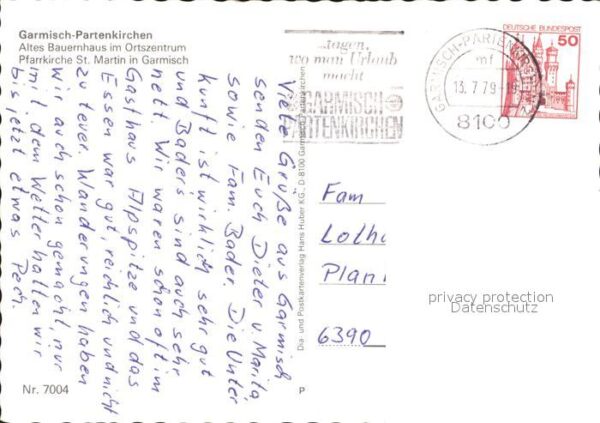 Garmisch-Partenkirchen
Altes Bauernhaus im Ortszentrum
Pfarrkirche St. Martin in Garmisch
...tagen,
wo man Urlaub
macht
GARMISCH
PARTENKIRCHEN
GARMISCH-PARTENKIRCHEN
mf
13.7.79-19
8100
DEUTSCHE BUNDESPOST
50
Viele Grüße aus Garmisch
senden Euch Dieter u. Marita
sowie Fam. Bader. Die Unter
kunft ist wirklich sehr gut
und Bader's sind auch sehr
nett. Wir waren schon oft im
Gasthaus Alpspitze und das
Essen war gut, reichlich und nicht
zu teuer. Wanderungen haben
wir auch schon gemacht, nur
mit dem Wetter hatten wir
bis jetzt etwas Pech.
Dia- und Postkartenverlag Hans Huber KG., D-8100 Garmisch-Partenkirchen
Fam
Lotha
Plan
6390
privacy protection
Datenschutz
Nr. 7004
P